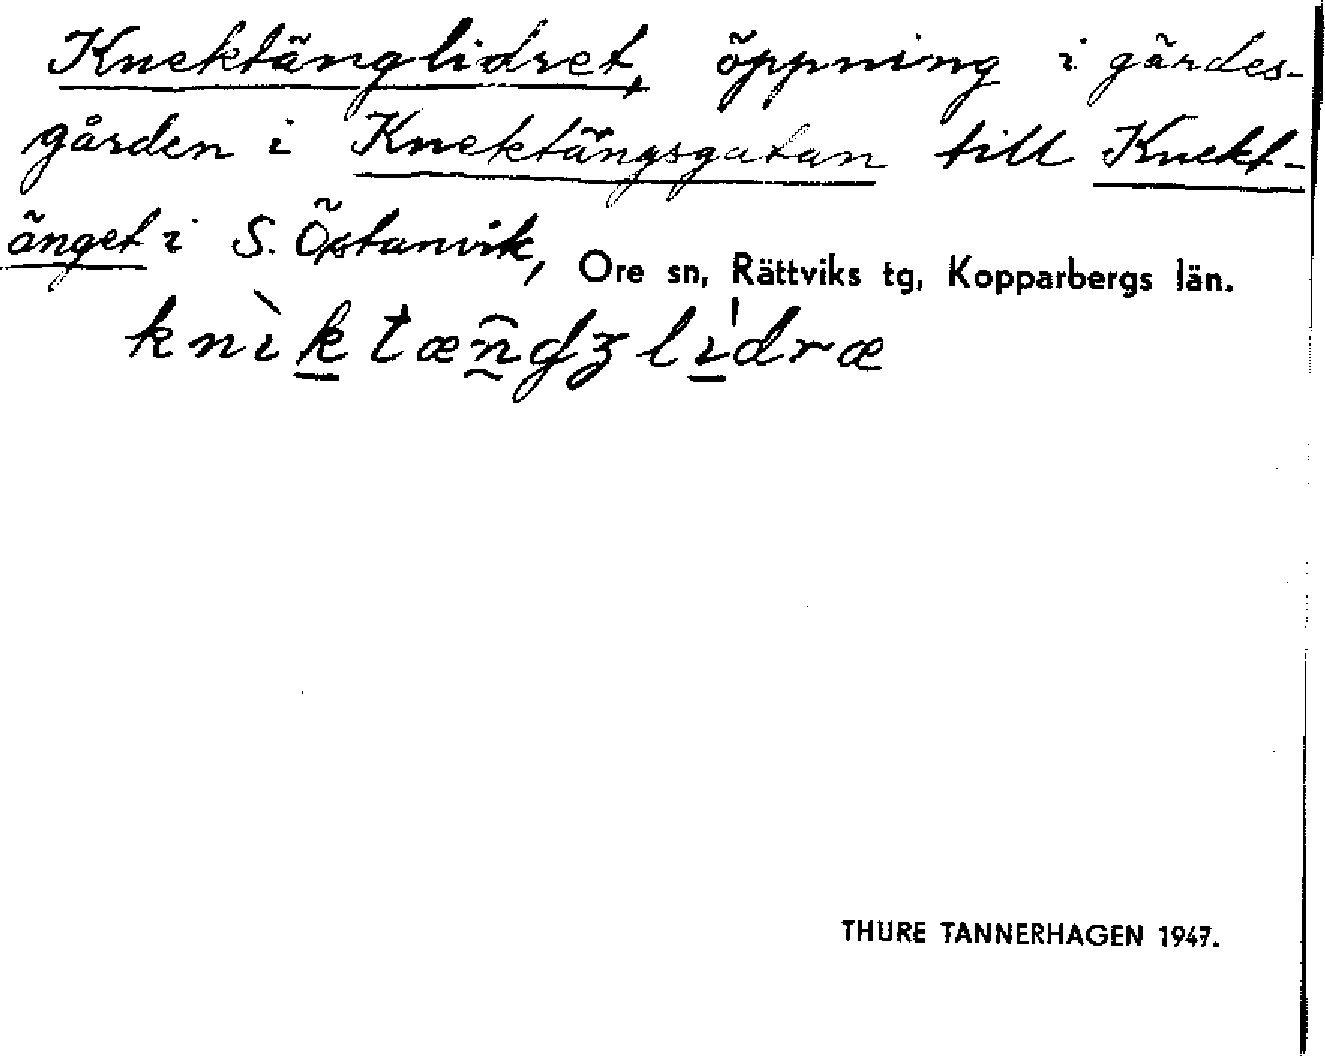 Knektänglidret, öppning i gärdes-
gården i Knektängsgatan till Knekt-
änget i S. Östanvik, Ore sn, Rättviks tg, Kopparbergs län.
THURE TANNERHAGEN 1947.